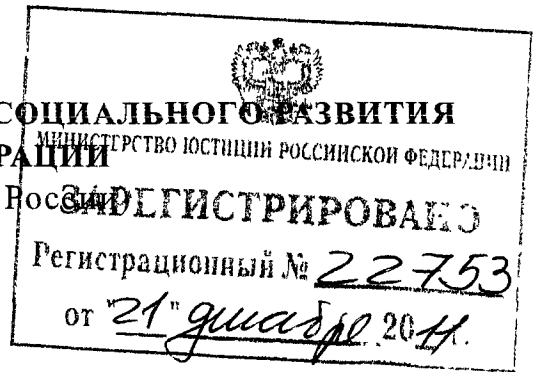 СОЦИАЛЬНОГО РАЗВИТИЯ
РАЦИИ
МИНИСТЕРСТВО ЮСТИЦИИ РОССИЙСКОЙ ФЕДЕРАЦИИ
России)
ЗАРЕГИСТРИРОВАНО
Регистрационный № 22753
от "21" декабря 2011.